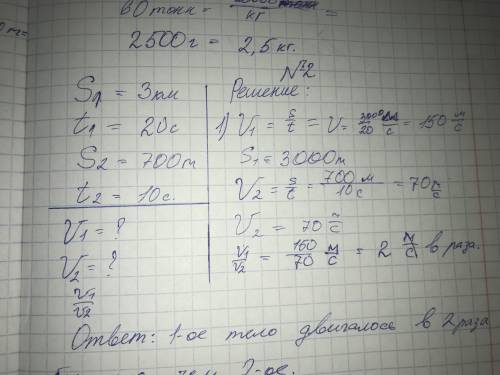 80 тонн =
кг =
2500 г = 2,5 кг.
№2
S1 = 3 км
t1 = 20с
S2 = 700м
t2 = 10с.
V1 = ?
V2 = ?
V1/V2
Решение:
1) V1 = s/t = V = 3000/20 м/с = 150 м/с
S1 = 3000м
V2 = s/t = 700 м/10с = 70 м/с
V2 = 70 м/с
V1/V2 = 150/70 м/с = 2 м/с в раза.
Ответ: 1-ое тело двигалось в 2 раза
чем 2-ое.